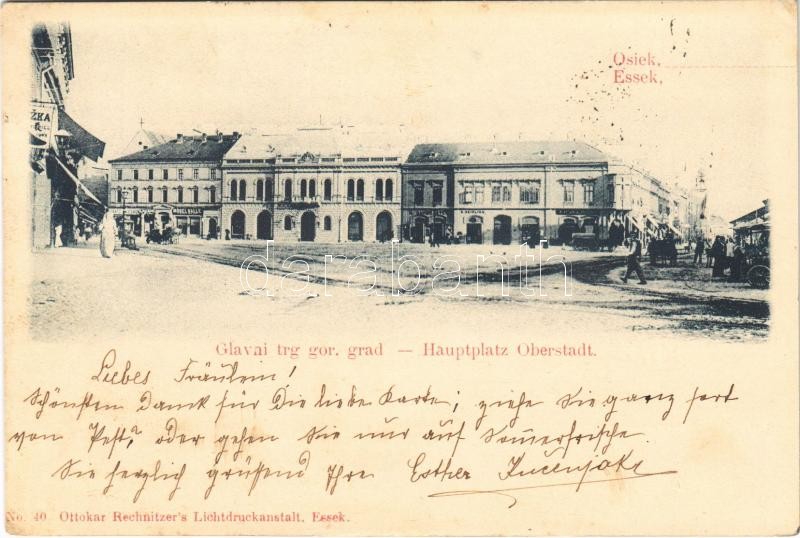 Osiek,
Essek,
ŽKA
MÖBEL HALLE
darabanth
Glavni trg gor. grad — Hauptplatz Oberstadt.
Liebes Fräulein!
Schönsten Dank für Die liebe Karte; ziehe Sie ganz fort
von Pest? oder gehen Sie nur auf Somerfrische.
Sie herzlich grüßend Ihre Esther
No. 40 Ottokar Rechnitzer's Lichtdruckanstalt, Essek.